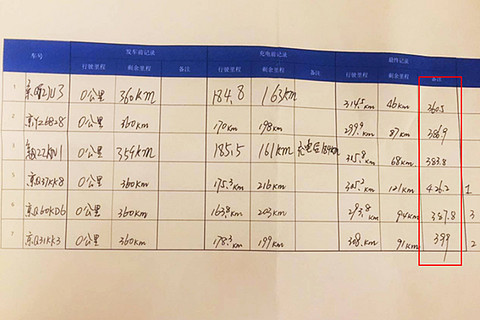 车号 发车前记录 充电前记录 最终记录
行驶里程 剩余里程 备注 行驶里程 剩余里程 备注 行驶里程 剩余里程 备注
1 0公里 360km 184.8 163km 314.5km 46km 360.5
0公里 360km 170km 198km 299.9km 87km 386.9
3 0公里 359km 185.5 161km 315.8km 68km 383.8
5 0公里 360km 175.3km 216km 305.2km 121km 426.2 1
6 京Q60KD6 0公里 360km 163.8km 203km 293.8km 94km 387.8 3
7 京Q31KK3 0公里 360km 178.3km 199km 308.km 91km 399 2